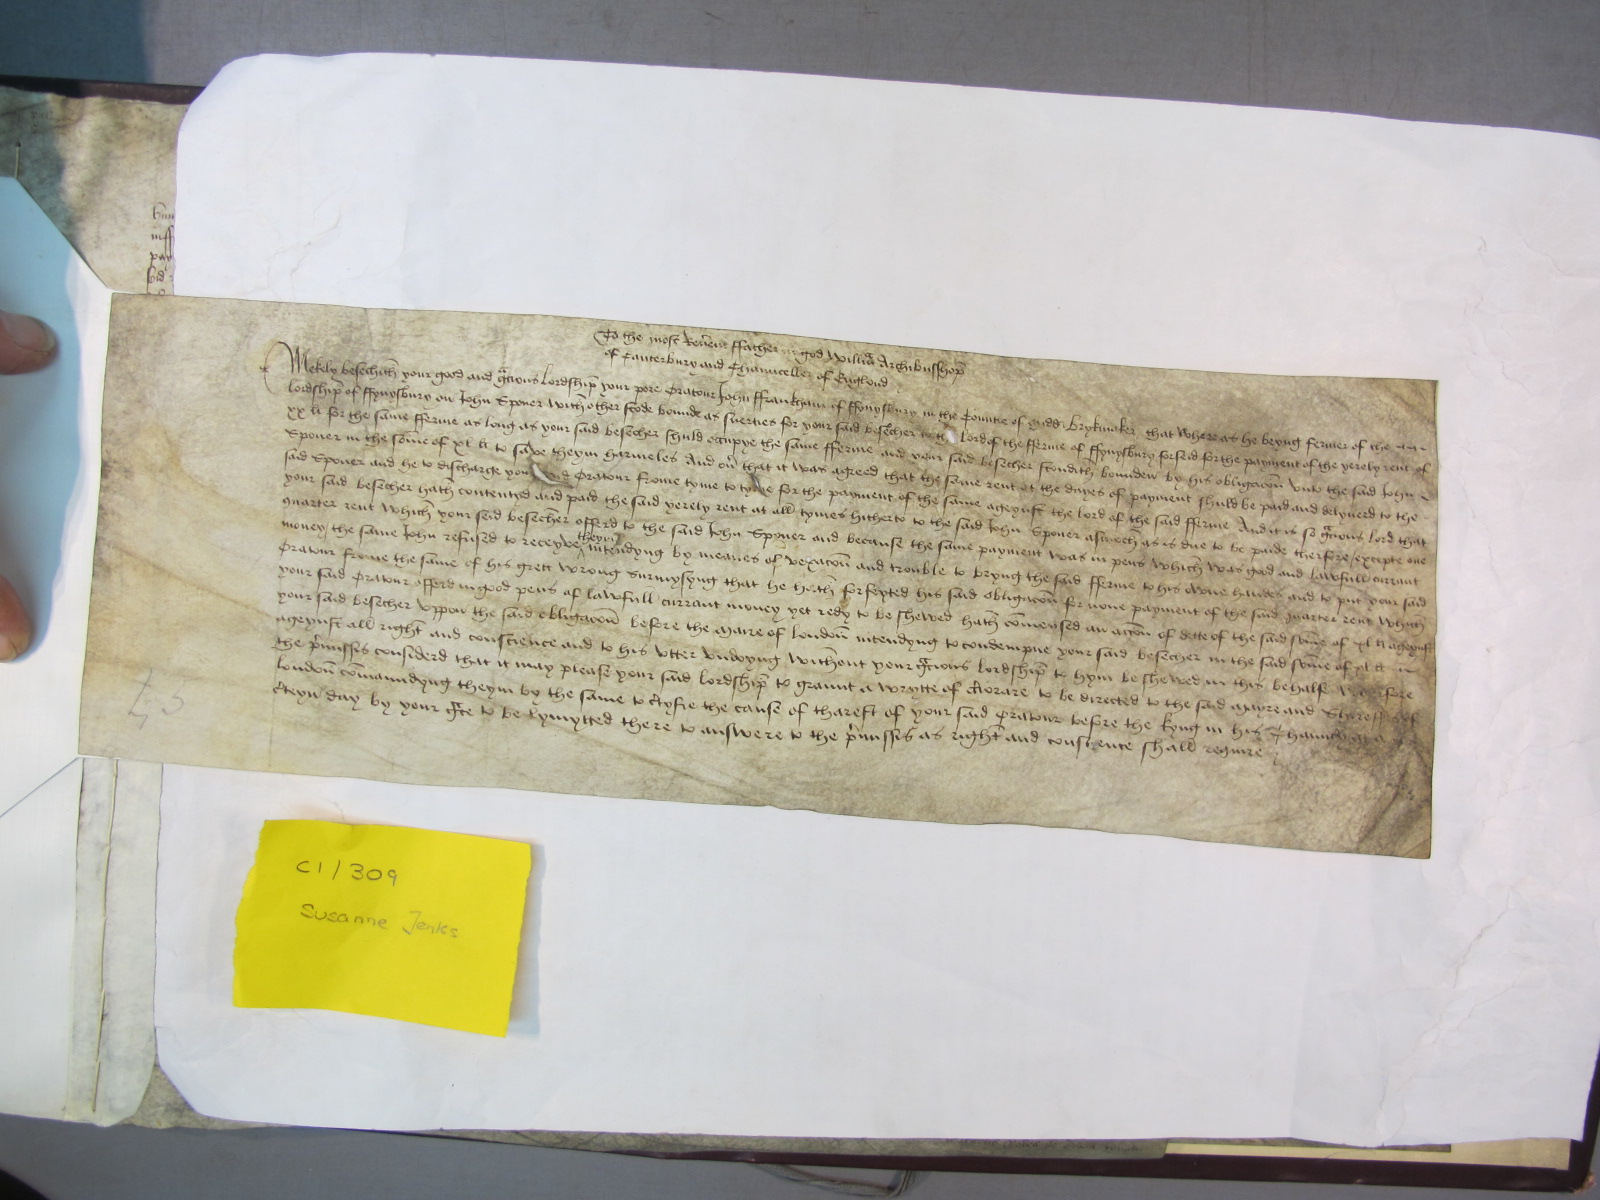 To the most Reũent ffather in god Willm̃ Archibusshop̃
of Caunterbury and Chaunceller of Englond
Mekely besechith your good and gracious lordship your pore Oratour John ffrankham of ffynysbury in the Countie of Midd Brykmaker that where as he beyng fermer of the
lordship of ffynysbury on John Sponer with other stode bounde as suerties for your said besecher to the lord of the fferme of ffynysbury forseid for the payment of the yerely rent of
xx li for the same fferme as long as your said besecher shuld occupye the same fferme and your said besecher stondith bounden by his obligacon̄ vnto the said John
Sponer in the som̄e of xl li to save theym harmeles And on̄ that it was agreed that the same rent at the dayes of payment shuld be paid and delyuerd to the
said Sponer and he to discharge your said Oratour frome tyme to tyme for the payment of the same ageynst the lord of the said fferme And it is so g̃cious lord that
your said besecher hath contentyd and paid the said yerely rent at all tymes hitherto to the said John Sponer asmoch as is due to be paide therfore excepte one
quarter rent which your seid besecher offerd to the said John Sponer and because the same payment was in pens which was good and lawfull currant
money the same John refused to receyve theym intendyng by meanes of vexacon̄ and trouble to bryng the said fferme to his owne handes and to put your said
Oratour frome the same of his grett wrong surmysyng that he hath forfeyted his said obligacon̄ for none payment of the said quarter rent which
your said Oratour offerd in good pens of lawfull currant money yet redy to be shewed hath comensed an accon̄ of dette of the said som̄e of xl li ageynst
your said besecher vppon the said obligacon̄ before the Maire of london̄ intendyng to condempne your said besecher in the said som̄e of xl li
ageynst all right and conscience and to his vtter vndoyng without your g̃cious lordship to hym be shewed in this behalf Wherfore
the p̃misses considerd that it may please your said lordship to graunt a wrytte of c̃tiorare to be directed to the said Mayre and Shireffs of
london̄ com̄aundyng theym by the same to c̃tyfie the cause of tharest of your said Oratour before the Kyng in his Chauncery at a
c̃teyn day by your g̃ce to be lymytted there to answere to the p̃misses as right and conscience shall require
45
C1/309
Susanne Jenks